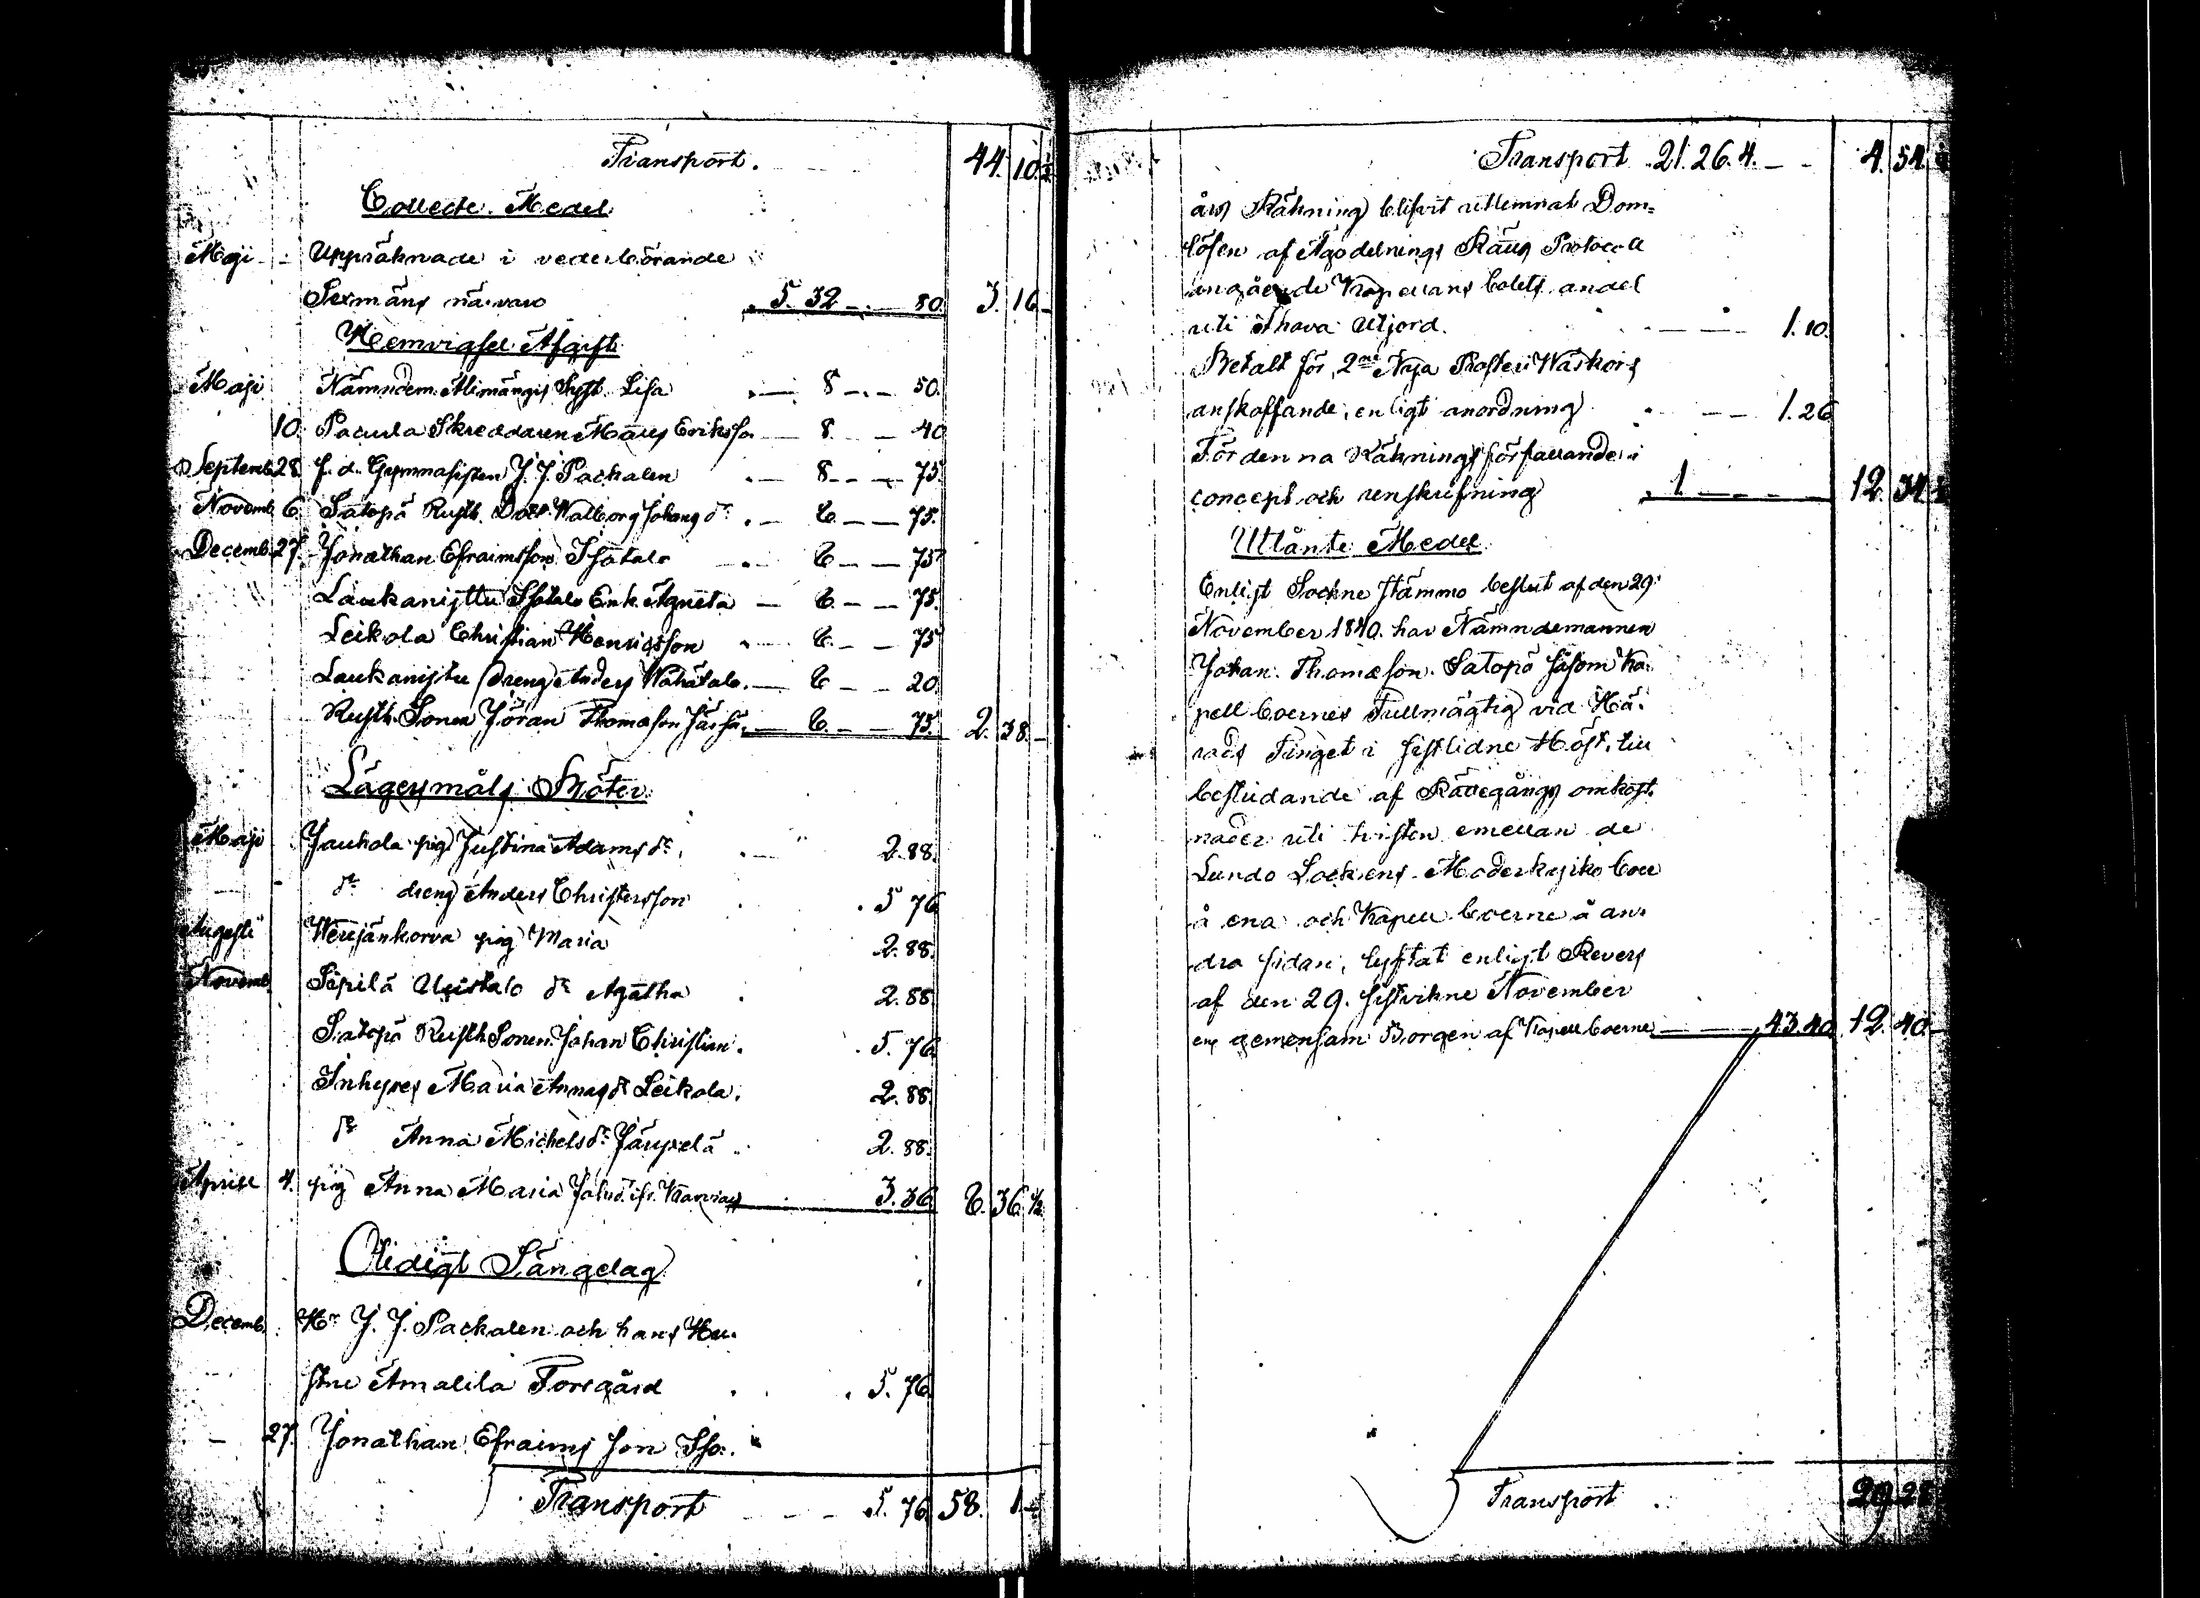 Transport. 44. 10.
Collecte Medel
Maji Uppräknade i vederbörande
Sexmäns närvaro 5. 32 80. 3. 16
Hemvigsel Afgift
Maji Nämndem. Lisa 8 50.
10. Paavola Skreddaren Mats Eriksson 8. 40
Septemb. 28. f. d. Gymnasisten J. J. Pachalen 8 75.
Novemb. 6. Satopä Rusth. Dott. Walborg Johans dr. 6 75.
Decemb. 27. Jonathan Efraimsson Isotalo 6 75
Laukanijttu Isotalo Enk. Agneta 6 75.
Leikola Christian Henricsson 6 75
Laukanijtu dreng Anders Wähätalo 6 20.
Rusth. Sonen Jöran Thomasson 6. 75. 2. 38.
Lägersmåls Böter
Maji Jauhola pig. Justina Adams dr. 2. 88.
dr. dreng Anders Christersson 5 76
Augusti pig. Maria 2. 88.
Novemb. Sipilä dr. Agatha 2. 88
Satopä Rusth. Sonen Johan Christian 5. 76
Inhyses Maria Annas dr. Leikola. 2. 88.
dr. Anna Michels dr. 2. 88.
Aprill 4. pig Anna Maria 3. 36. 6. 36. ½
Otidigt Sängelag
Decemb. Hr. J. J. Pachalen och hans Hu-
stru Amalila Forsgård 5. 76.
27. Jonathan Efraims son Iso.
Transport 5. 76. 58. 1
Transport 21. 26. 4. 4. 54.
års Räkning blifvit utlemnat Dom=
lösen af Ägodelnings Rätts Protocoll
angående Kapellans bolets andel
uti Ihava Utjord. 1. 10.
Betalt för 2ne Nya
anskaffande, enligt anordning 1. 26
För denna Räknings författande i
concept och renskrifning 1 12. 34
Utlånte Medel
Enligt Sockne stämmo beslut af den 29
November 1840. har Nämndemannen
Johan Thomasson Satopä såsom Ka-
pell boernes Fullmägtig vid Hä-
rads Tinget i sistlidne Höst, till
bestridande af Rättegångs omkost-
nader uti tvisten emellan de
Lundo Sockens Moderkyrko boer
å ena och Kapell boerne å an-
dra sidan, lyftat enligt Revers
af den 29. sistvikne November
gemensam Borgen af Kapell boerne 43. 40. 12. 40.
Transport 29. 28